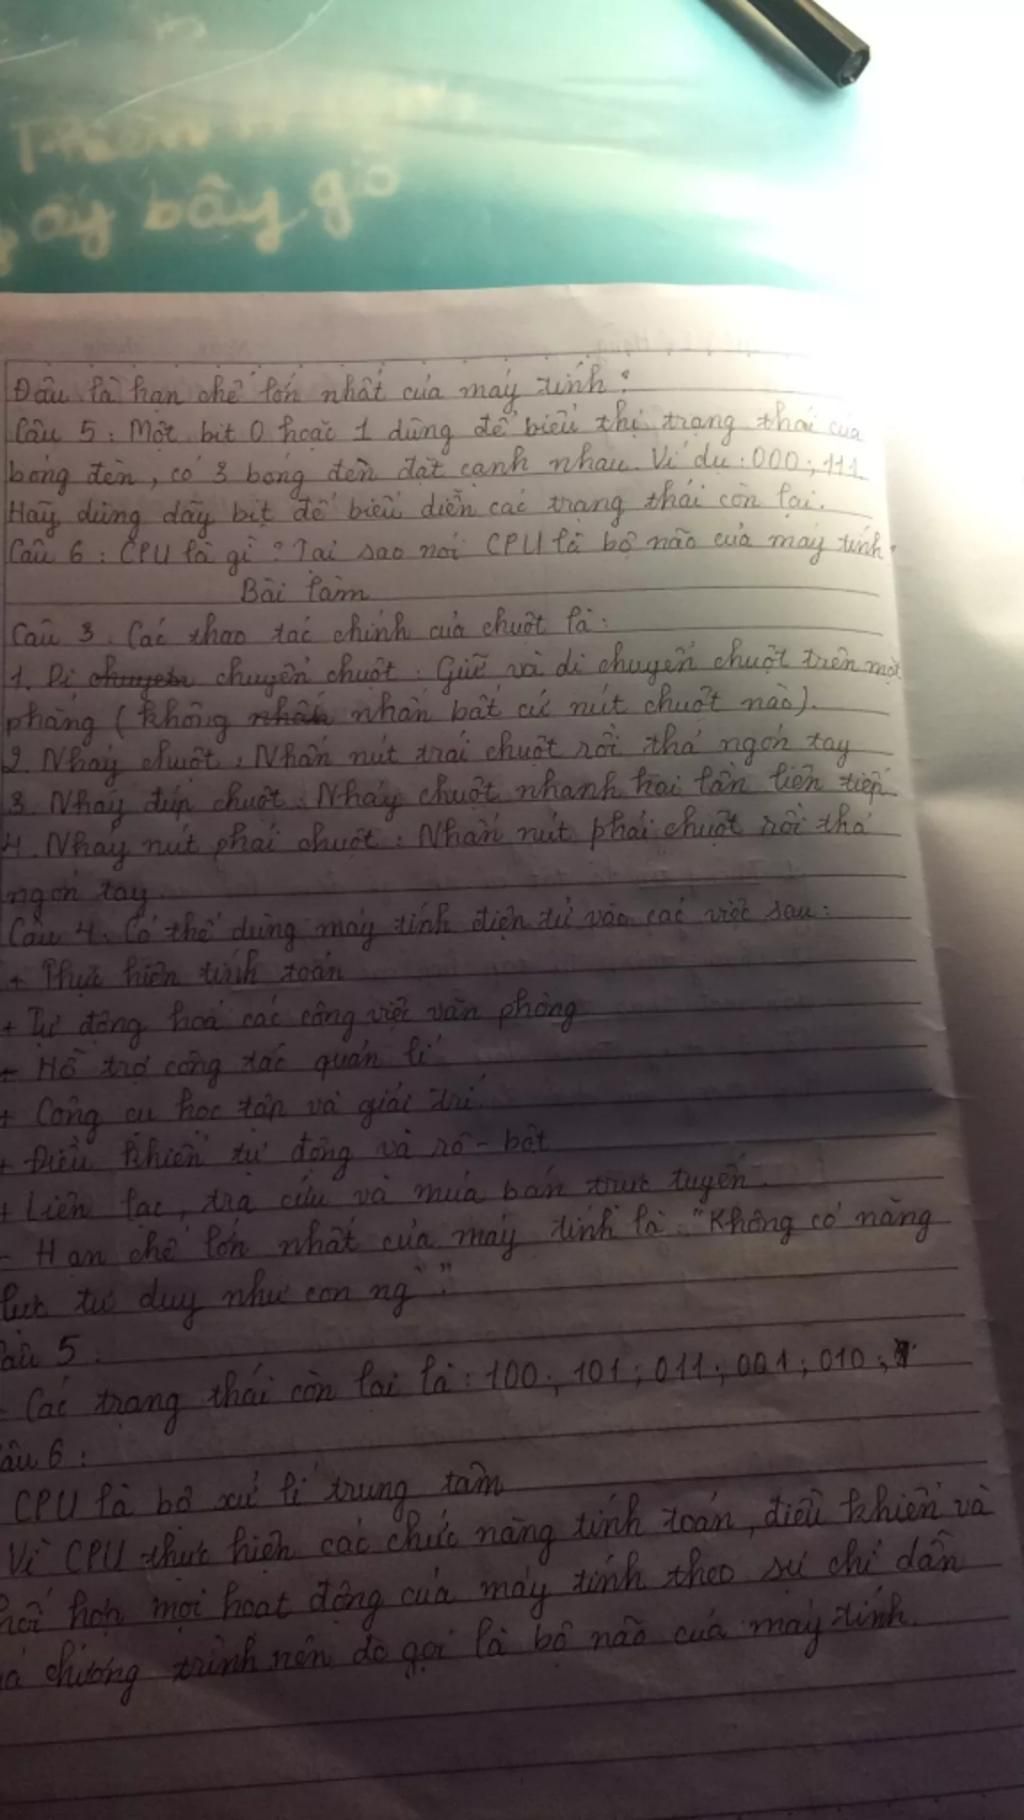 ay bây giờ
Đâu là hạn chế lớn nhất của máy tính?
Câu 5: Một bit 0 hoặc 1 dùng để biểu thị trạng thái của
bóng đèn, có 3 bóng đèn đặt cạnh nhau. Ví dụ: 000; 111
Hãy dùng dãy bit để biểu diễn các trạng thái còn lại.
Câu 6: CPU là gì? Tại sao nói CPU là bộ não của máy tính.
Bài làm
Câu 3. Các thao tác chính của chuột là:
1. Di chuyển chuột: Giữ và di chuyển chuột trên mặt
phẳng (không nhấn bất cứ nút chuột nào).
2. Nháy chuột: Nhấn nút trái chuột rồi thả ngón tay
3. Nháy đúp chuột: Nháy chuột nhanh hai lần liên tiếp.
4. Nháy nút phải chuột: Nhấn nút phải chuột rồi thả
ngón tay.
Câu 4. Có thể dùng máy tính điện tử vào các việc sau:
+ Thực hiện tính toán
+ Tự động hoá các công việc văn phòng
+ Hỗ trợ công tác quản lí
+ Công cụ học tập và giải trí.
+ Điều khiển tự động và rô-bốt
+ Liên lạc, tra cứu và mua bán trực tuyến.
- Hạn chế lớn nhất của máy tính là "Không có năng
lực tư duy như con ng`."
âu 5:
- Các trạng thái còn lại là: 100; 101; 011; 001; 010;
âu 6:
CPU là bộ xử lí trung tâm
Vì CPU thực hiện các chức năng tính toán, điều khiển và
phối hợp mọi hoạt động của máy tính theo sự chỉ dẫn
chương trình nên đc gọi là bộ não của máy tính.